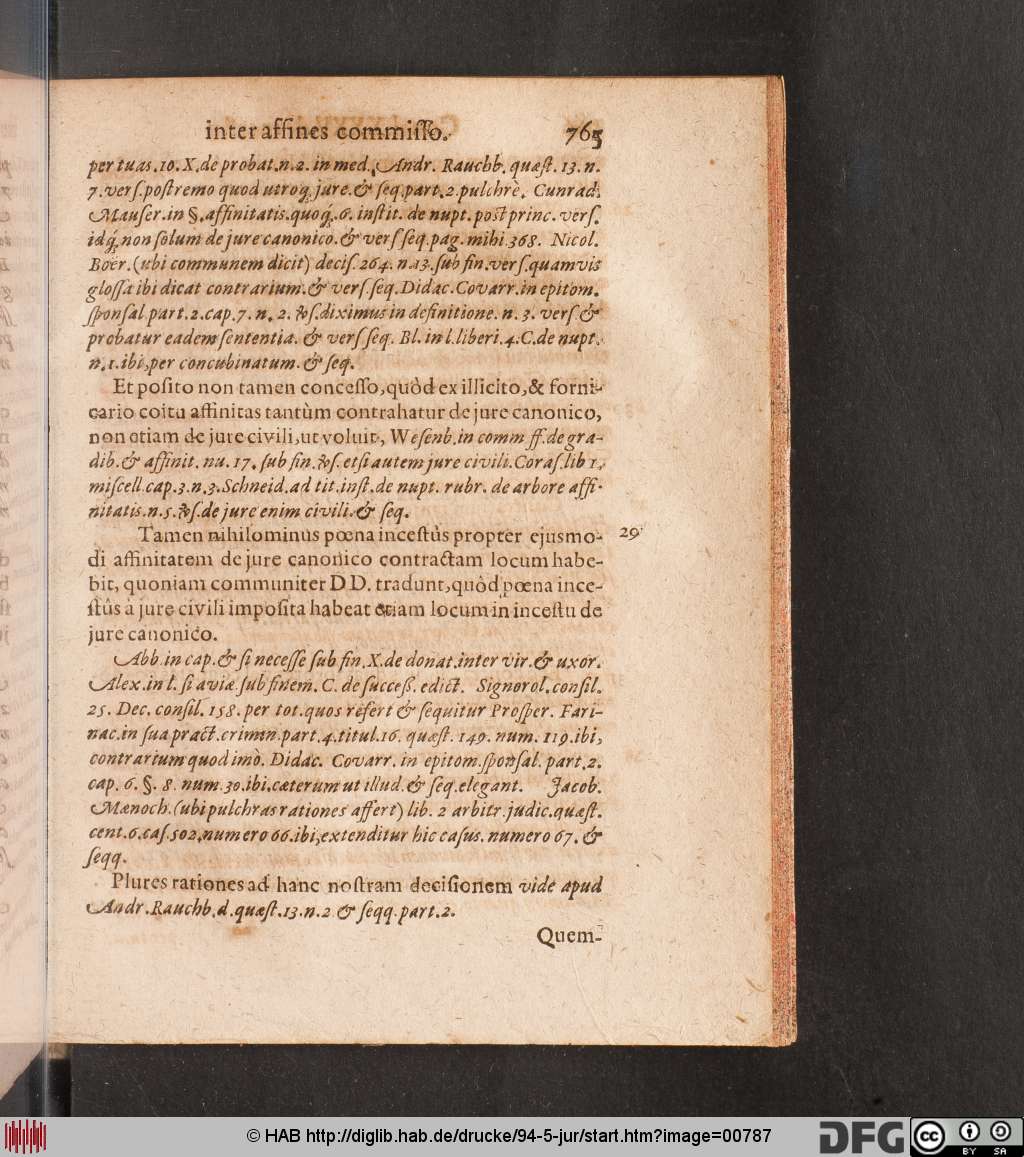 inter affines commiſſo. 765
per tuas.10.X.de probat.n.2. in med. Andr. Rauchb. quæſt. 13. n.
7. verſ.poſtremo quod utroq; jure.& ſeq.part.2.pulchrè. Cunrad.
Mauſer.in §.affinitatis.quoq;.6. inſtit. de nupt. poſt princ. verſ.
idq; non ſolum de jure canonico.& verſ ſeq.pag. mihi 368. Nicol.
Boër.(ubi communem dicit) deciſ. 264. n.13.ſub fin.verſ.quamvis
gloſſa ibi dicat contrarium.& verſ.ſeq.Didac.Covarr.in epitom.
ſponſal.part.2.cap.7. n. 2. ꝟſ.diximus in definitione. n. 3. verſ &
probatur eadem ſententia. & verſ ſeq. Bl. in l.liberi.4.C.de nupt.
n.1.ibi,per concubinatum.& ſeq.
Et poſito non tamen conceſſo,quòd ex illicito,& forni-
cario coitu affinitas tantùm contrahatur de jure canonico,
non etiam de jure civili,ut voluit, Weſenb.in comm ff.de gra-
dib.& affinit. nu. 17. ſub fin.ꝟſ. etſi autem jure civili.Coraſ.lib 1.
miſcell.cap.3.n.3.Schneid.ad tit.inſt.de nupt. rubr. de arbore affi-
nitatis.n.5.ꝟſ.de jure enim civili.& ſeq.
Tamen nihilominus pœna inceſtûs propter ejusmo- 29
di affinitatem de jure canonico contractam locum habe-
bit, quoniam communiter D D. tradunt,quòd pœna ince-
ſtûs à jure civili impoſita habeat etiam locum in inceſtu de
jure canonico.
Abb.in cap.& ſi neceſſe ſub fin.X.de donat.inter vir.& uxor.
Alex.in l. ſi aviæ.ſub finem. C. de ſucceſſ. edict. Signorol.conſil.
25. Dec. conſil. 158. per tot.quos refert & ſequitur Proſper. Fari-
nac.in ſua pract.crimin.part.4.titul.16. quæſt. 149. num. 119.ibi,
contrarium quod imò. Didac. Covarr. in epitom.ſponſal. part.2.
cap. 6. §. 8. num.30.ibi.cæterum ut illud.& ſeq.elegant. Jacob.
Mænoch.(ubi pulchras rationes affert) lib. 2 arbitr.judic.quæſt.
cent.6.caſ.502.numero 66.ibi,extenditur hic caſus.numero 67. &
ſeqq.
Plures rationes ad hanc noſtram deciſionem vide apud
Andr.Rauchb.d.quæſt.13.n.2 & ſeqq.part.2.
Quem-
© HAB http://diglib.hab.de/drucke/94-5-jur/start.htm?image=00787
DFG cc BY SA